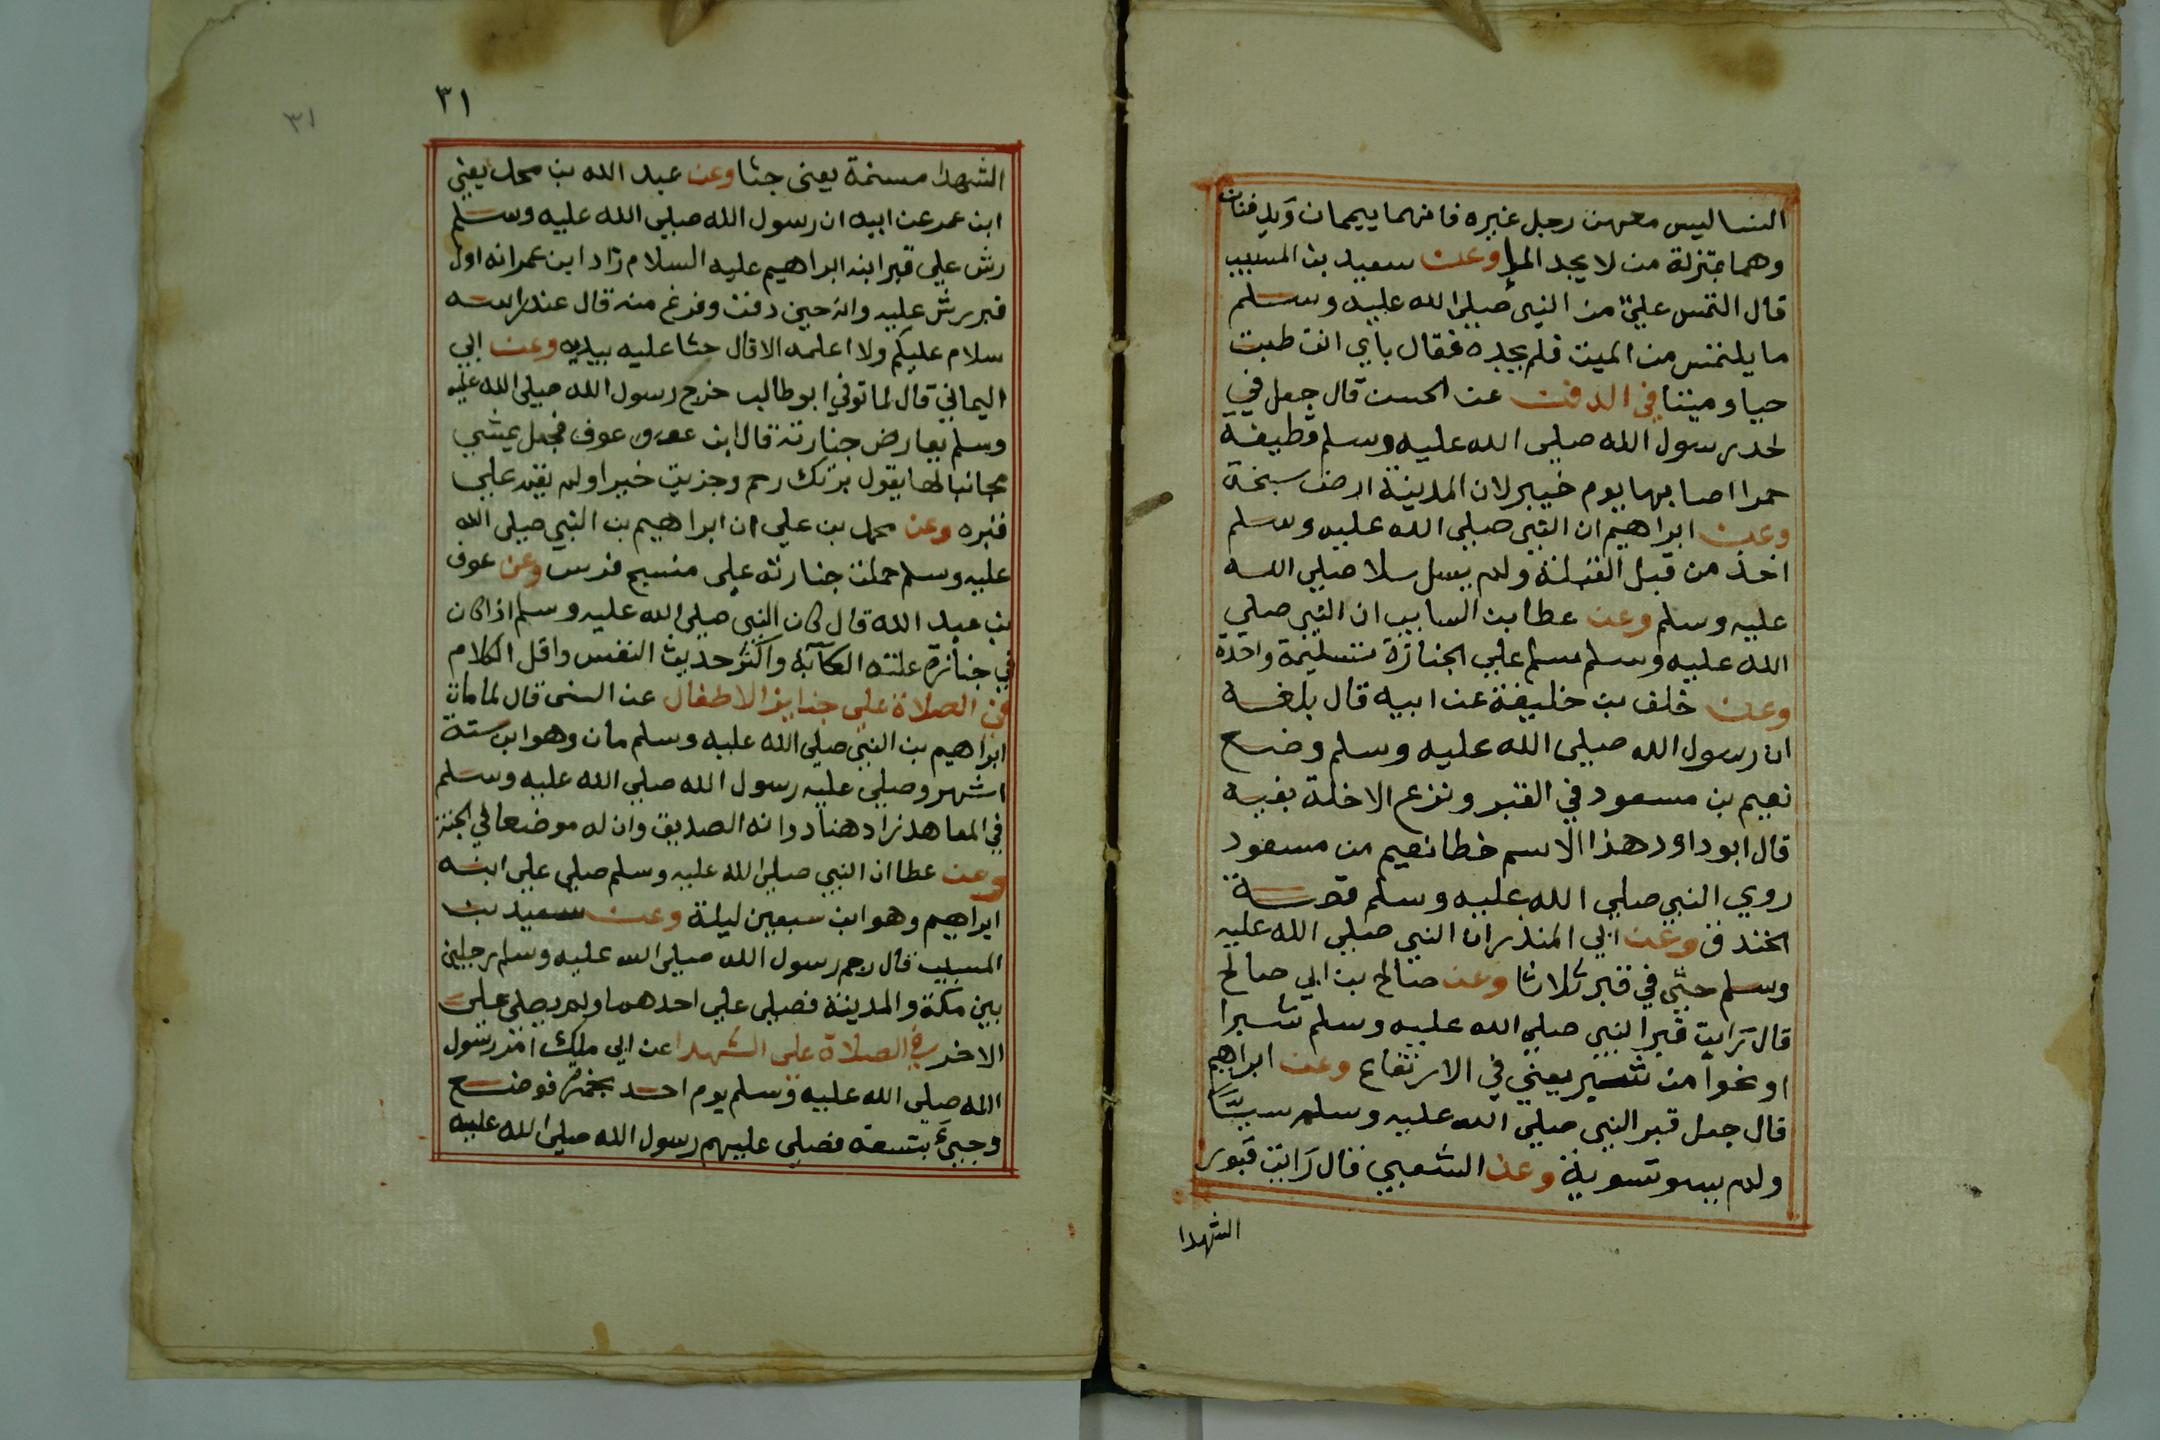 النسا ليس معهن رجل غيره فانهما ييممان ويدفنان
وهما بمنزلة من لا يجد الما وعن سعيد بن المسيب
قال التمس علي من النبي صلى الله عليه وسلم
ما يلتمس من الميت فلم يجده فقال بابي انت طبت
حيا وميتا في الدفن عن الحسن قال جعل في
لحد رسول الله صلى الله عليه وسلم قطيفة
حمرا اصابها يوم خيبر لان المدينة ارض سبخة
وعن ابراهيم ان النبي صلى الله عليه وسلم
اخذ من قبل القبلة ولم يسل سلا صلى الله
عليه وسلم وعن عطا بن السايب ان النبي صلى
الله عليه وسلم سلم على الجنازة تسليمة واحدة
وعن خلف بن خليفة عن ابيه قال بلغه
ان رسول الله صلى الله عليه وسلم وضع
نعيم بن مسعود في القبر ونزع الاخلة بفيه
قال ابو داود هذا الاسم خطا نعيم بن مسعود
روي النبي صلى الله عليه وسلم قصة
الخندق وعن ابي المنذر ان النبي صلى الله عليه
وسلم حثى في قبر ثلاثا وعن صالح بن ابي صالح
قال رايت قبر النبي صلى الله عليه وسلم شبرا
او نحوا من شبر يعني في الارتفاع وعن ابراهيم
قال جعل قبر النبي صلى الله عليه وسلم
ولم يسو تسوية وعن الشعبي قال رايت قبور
الشهدا
٣١
٣١
الشهدا مسنمة يعنى جثا وعن عبد الله بن محمد يعني
ابن عمر عن ابيه ان رسول الله صلى الله عليه وسلم
رش على قبر ابنه ابراهيم عليه السلام زاد ابن عمر انه اول
قبر رش عليه وانه حين دفن وفرغ منه قال عند راسه
سلام عليكم ولا اعلمه الا قال حثا عليه بيديه وعن ابي
اليماني قال لما توفي ابو طالب خرج رسول الله صلى الله عليه
وسلم يعارض جنازته قال ابن عوف فجعل يمشي
مجانبا لها يقول برتك رحم وجزيت خيرا ولم يقم على
قبره وعن محمد بن علي ان ابراهيم بن النبي صلى الله
عليه وسلم حملت جنازته على منسج فرس وعن عوف
بن عبد الله قال كان النبي صلى الله عليه وسلم اذا كان
في جنازة علته الكآبة واكثر حديث النفس واقل الكلام
في الصلاة على جنايز الاطفال عن السدى قال لما مات
ابراهيم بن النبي صلى الله عليه وسلم مات وهو ابن ستة
اشهر وصلى عليه رسول الله صلى الله عليه وسلم
في المقاعد زاد هناد وانه الصديق وان له موضعا في الجنة
وعن عطا ان النبي صلى الله عليه وسلم صلى على ابنه
ابراهيم وهو ابن سبعين ليلة وعن سعيد بن
المسيب قال رجم رسول الله صلى الله عليه وسلم رجلين
بين مكة والمدينة فصلى على احدهما ولم يصلي على
الاخر في الصلاة على الشهدا عن ابي ملك امر رسول
الله صلى الله عليه وسلم يوم احد بحمزة فوضع
وجيئ بتسعة فصلى عليهم رسول الله صلى الله عليه